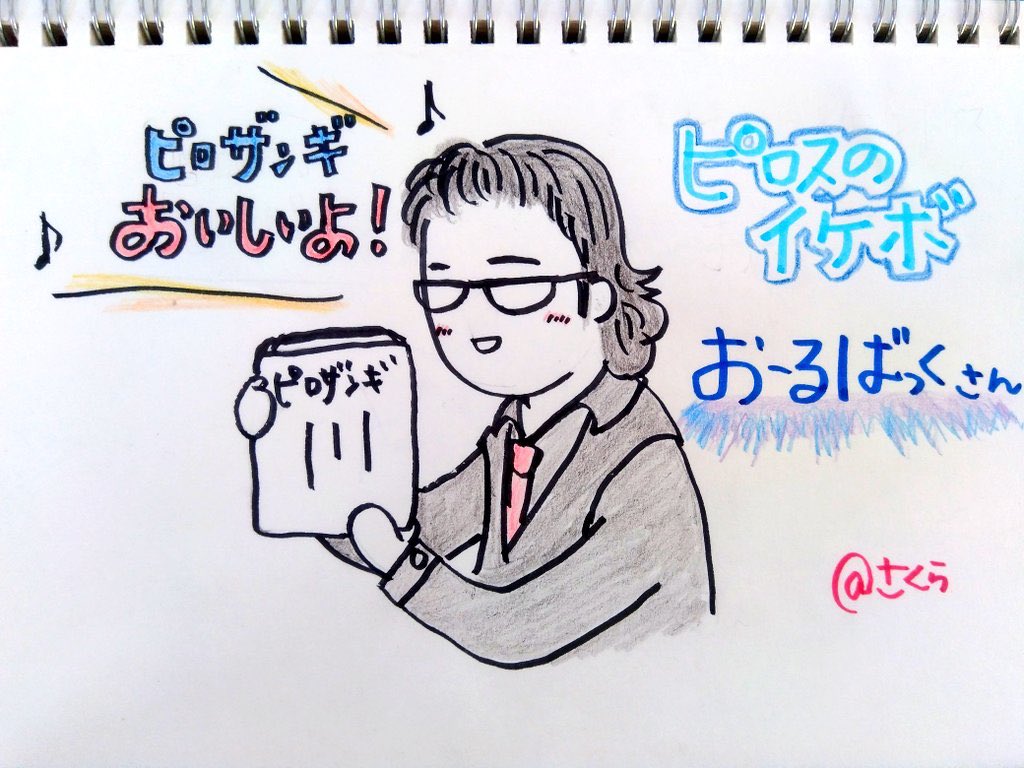 ピロザンギ
おいしいよ!
ピロザンギ
ピロスの
イケボ
おーるばっくさん
@さくら